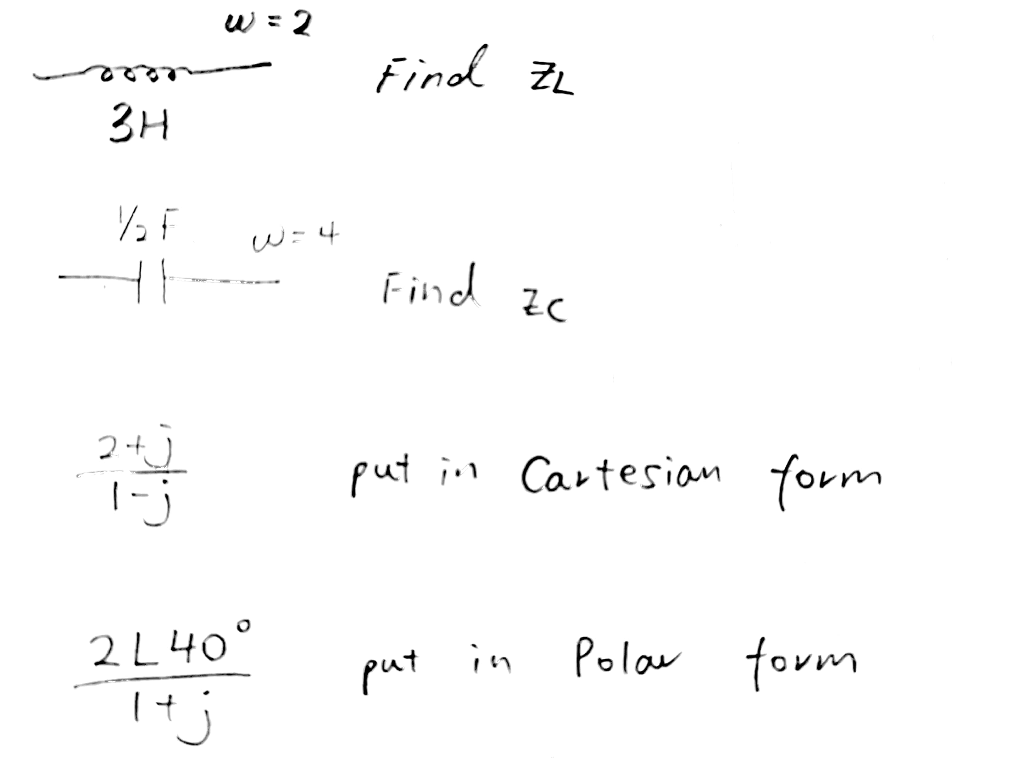 w = 2
Find ZL
3H
1/2 F w = 4
Find ZC
2+j
1-j
put in Cartesian form
2∠40°
1+j
put in Polar form